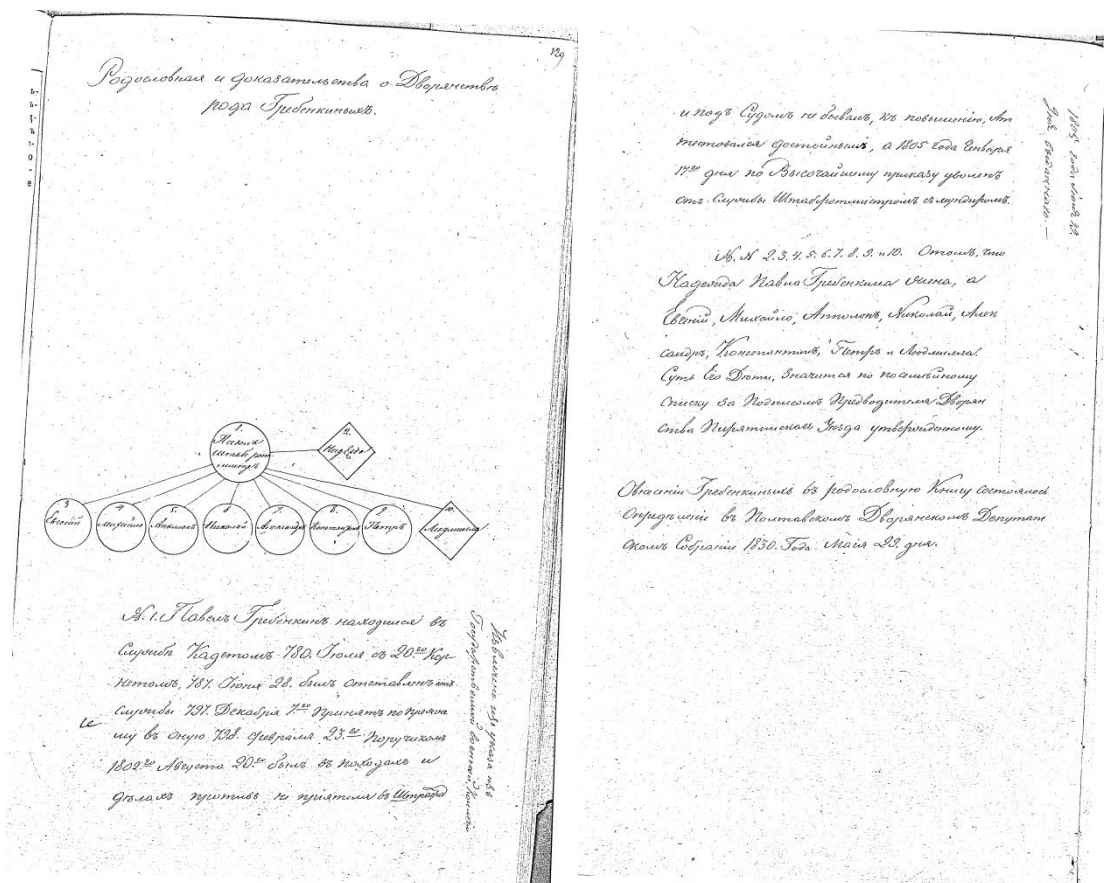 129
Родословная и доказательства о Дворянствѣ
рода Гребенкиныхъ.
1.
Павелъ
штабъ рот
мистръ
2.
Надежда
3
Евгеній
4
Михайло
5.
Апполонъ
6
Николай
7.
Александръ
8.
Константинъ
9
Петръ
10.
Людмилла
№. 1. Павелъ Гребенкинъ находился въ
Службѣ Кадетомъ 780. Іюля съ 20.го Кор
нетомъ, 787. Іюня 28. былъ отставленъ отъ
службы 797. Декабря 7.го Принятъ по прежне
му въ оную 798. февраля 23.го Поручикомъ
1802.го Августа 20.го былъ въ походахъ и
дѣлахъ противъ не пріятеля въ Штрафа
Извлечено изъ указа изъ
Государственной военной Коллегіи
и подъ Судомъ не бывалъ, къ повышенію, Ат
тестовался достойнымъ, а 1805 года Генваря
17го дня по Высочайшему приказу уволенъ
отъ Службы Штабъротмистромъ съ мундиромъ.
1805 года
дня выданнаго. —
№. № 2. 3. 4. 5. 6. 7. 8. 9. и 10. Отомъ, что
Надежда Павла Гребенкина жена, а
Евгеній, Михайло, Апполонъ, Николай, Алек
сандръ, Константинъ, Петръ и Людмилла.
Суть Его Дѣти, Значится по посемѣйному
списку за Подписомъ Предводителя Дворян
ства Пирятинскаго Уѣзда утвержденному.
Овнесеніи Гребенкиныхъ въ родословную Книгу состоялось
Опредѣленіе въ Полтавскомъ Дворянскомъ Депутат
скомъ Собраніи 1830. Года. Маія 29. дня.